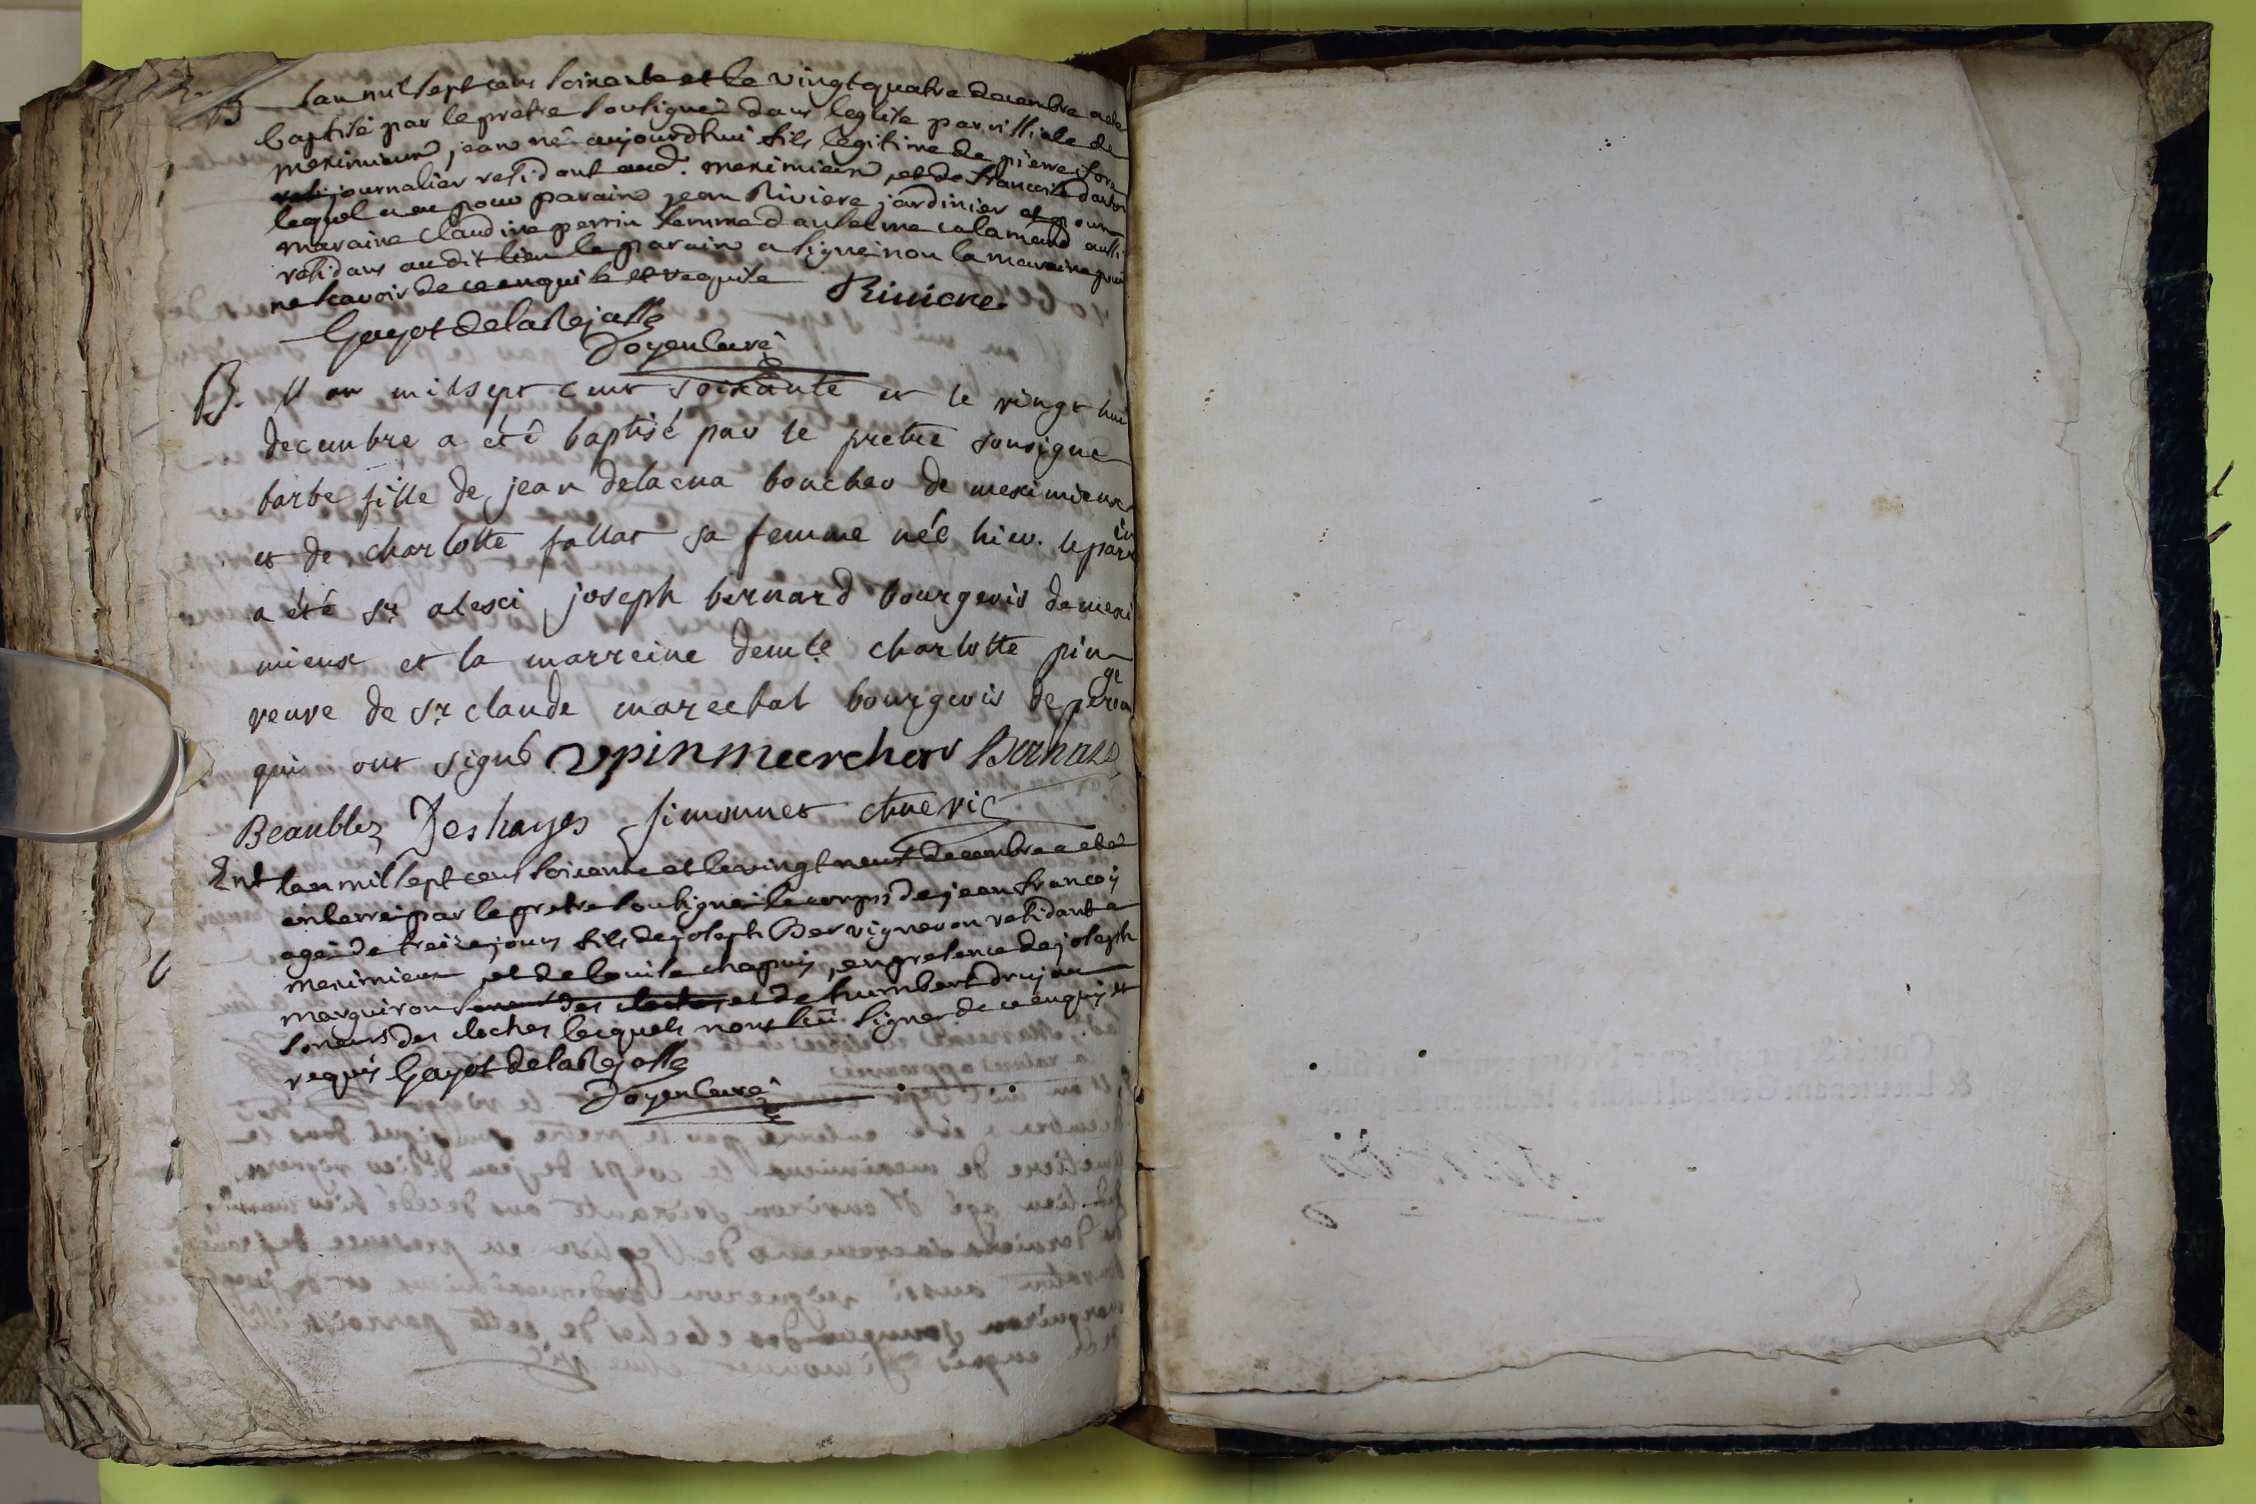 B Lan mil sept cens soixante et le vingt quatre decembre a ete
baptisé par le pretre soussigné dans leglise paroissiale de
meximieux jean né aujourdhui fils legitime de pierre
journalier residant aud. meximieux et de francoise
lequel a eu pour parain jean Riviere jardinier et pour
maraine claudine perrin femme danselme calamard aussi
residans audit lieu le parain a signé non la maraine pour
ne scavoir de ce enquise et requise Riviere
Guyot de la Rejasse
Doyen curé
B. l an mil sept cent soixante et le vingt huit
decembre a été baptisé par le pretre sousigné
barbe fille de jean delacua boucher de meximieux
et de charlotte fallat sa femme née hier. le parrain
a été sr alexi joseph bernard bourgeois de mexi
mieux et la marreine demlle charlotte pin
veuve de sr claude marechal bourgeois de peroge
qui ont signé v pin marchar Bernard
Beaublez Deshayes simonnet vic
Ent Lan mil sept cens soixante et le vingt neuf decembre a eté
enterré par le pretre soussigné le corps de jean francois
agé de treize jours fils de joseph Ber vigneron residant a
meximieux et de louise chapuis, en presence de joseph
marguiron et de humbert drujon
soneurs des cloches lesquels nont sceu signer de ce enquis et
requis Guyot de la Rejasse
Doyen curé